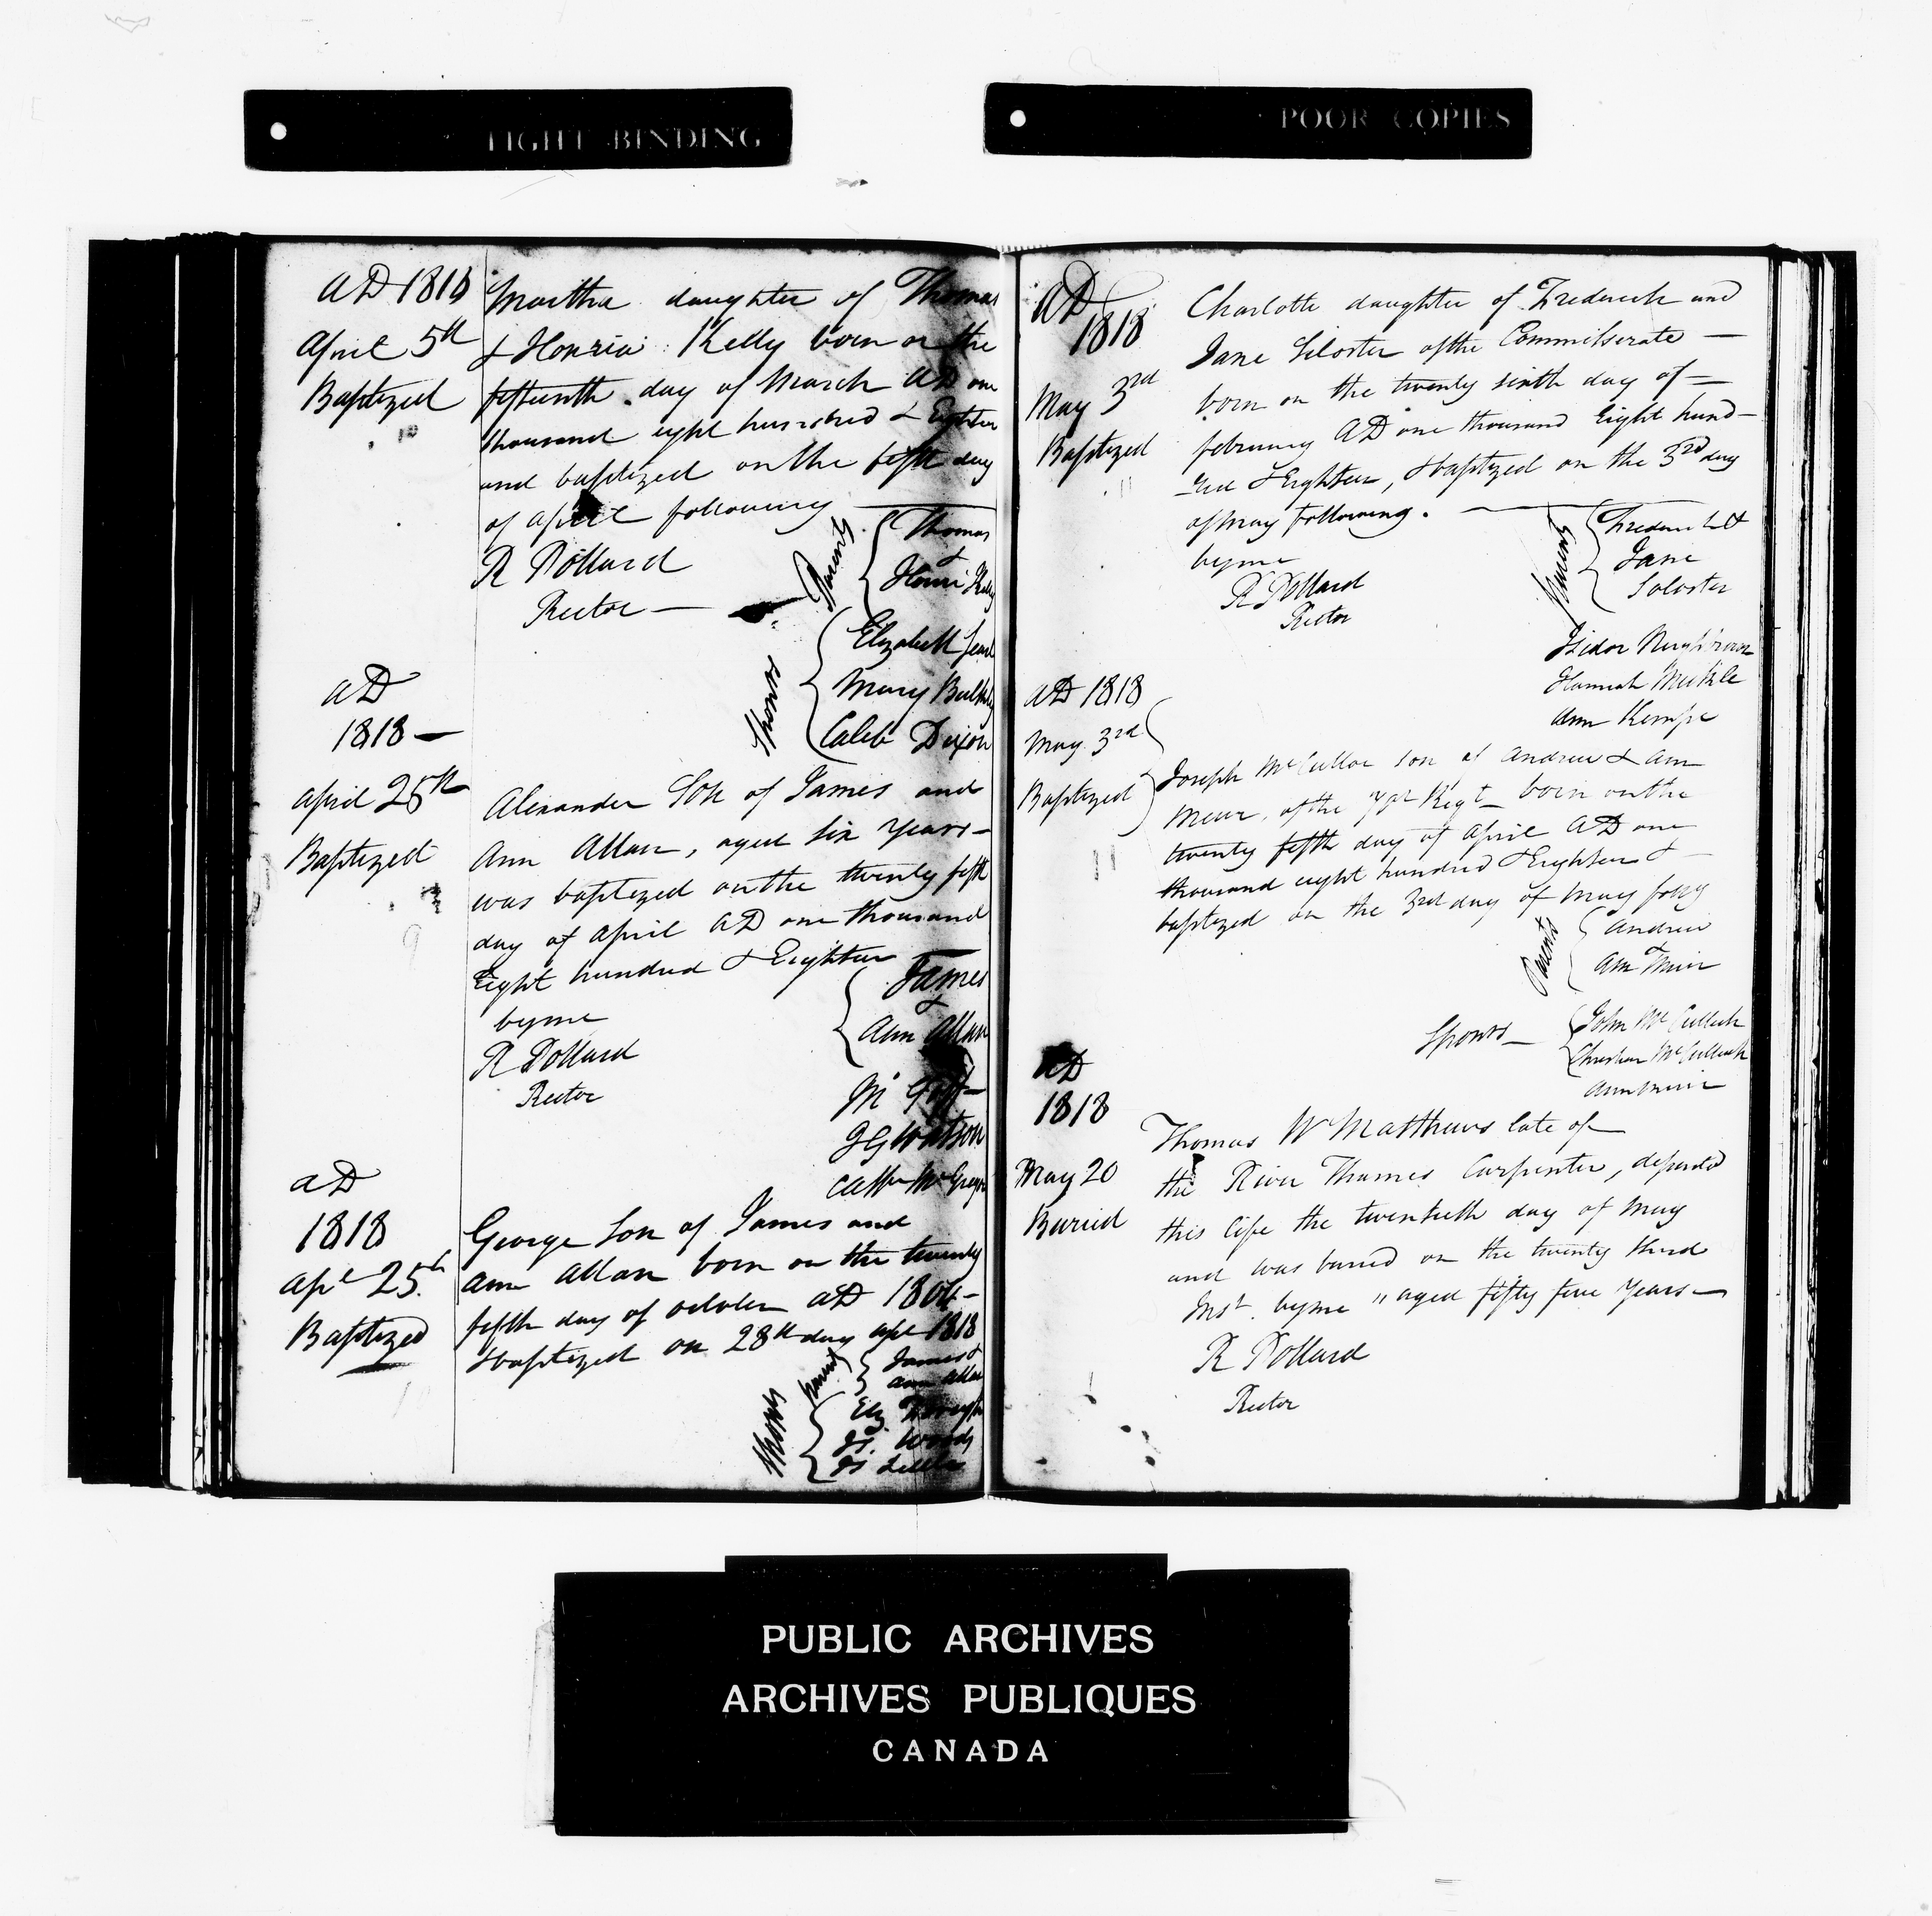 TIGHT BINDING
POOR COPIES
AD 1818
April 5th
Baptized
Martha daughter of Thomas
& Honria Kelly born on the
fifteenth day of March AD one
thousand eight hundred & Eighteen
and baptized on the fifth day
of april following
R Pollard
Rector
Parents
Thomas
&
Kelly
Sponrs
Elizabeth
Mary
Caleb Dixon
AD
1818 —
april 25th
Baptized
Alexander Son of James and
Ann Allan, aged Six Years —
was baptized on the twenty fifth
day of April AD one thousand
Eight hundred & Eighteen
by me
R Pollard
Rector
James
&
Ann Allan
J G Watson
AD
1818
apl 25th
Baptized
George Son of James and
ann allan born on the twenty
fifth day of october AD 1804 —
& baptized on 28th day apl 1818
parents
James &
ann allan
Sponrs
Js. Woods
AD
1818
May 3rd
Baptized
Charlotte daughter of Frederick and
Jane of the Commissariate —
born on the twenty sixth day of =
february AD one thousand Eight hund-
-red & Eighteen, & baptized on the 3rd day
of may following. —
by me
R Pollard
Rector
Parents
Frederick &
Jane
Isidor
Hannah
Ann Kempe
AD 1818
May 3rd
Baptized
Joseph McCulloc son of andrew & Ann
of the Regt — born on the
twenty fifth day of April AD one
thousand eight hundred & Eighteen &
baptized on the 3rd day of may folly
Parents
andrew
&
Ann Muir
Sponrs —
John McCulloch
Christian McCulloch
Ann Muir
AD
1818
May 20
Buried
Thomas W Matthews late of
the River Thames Carpenter, departed
this life the twentieth day of May
and was buried on the twenty third
Inst. by me " aged fifty five Years —
R Pollard
Rector
PUBLIC ARCHIVES
ARCHIVES PUBLIQUES
CANADA